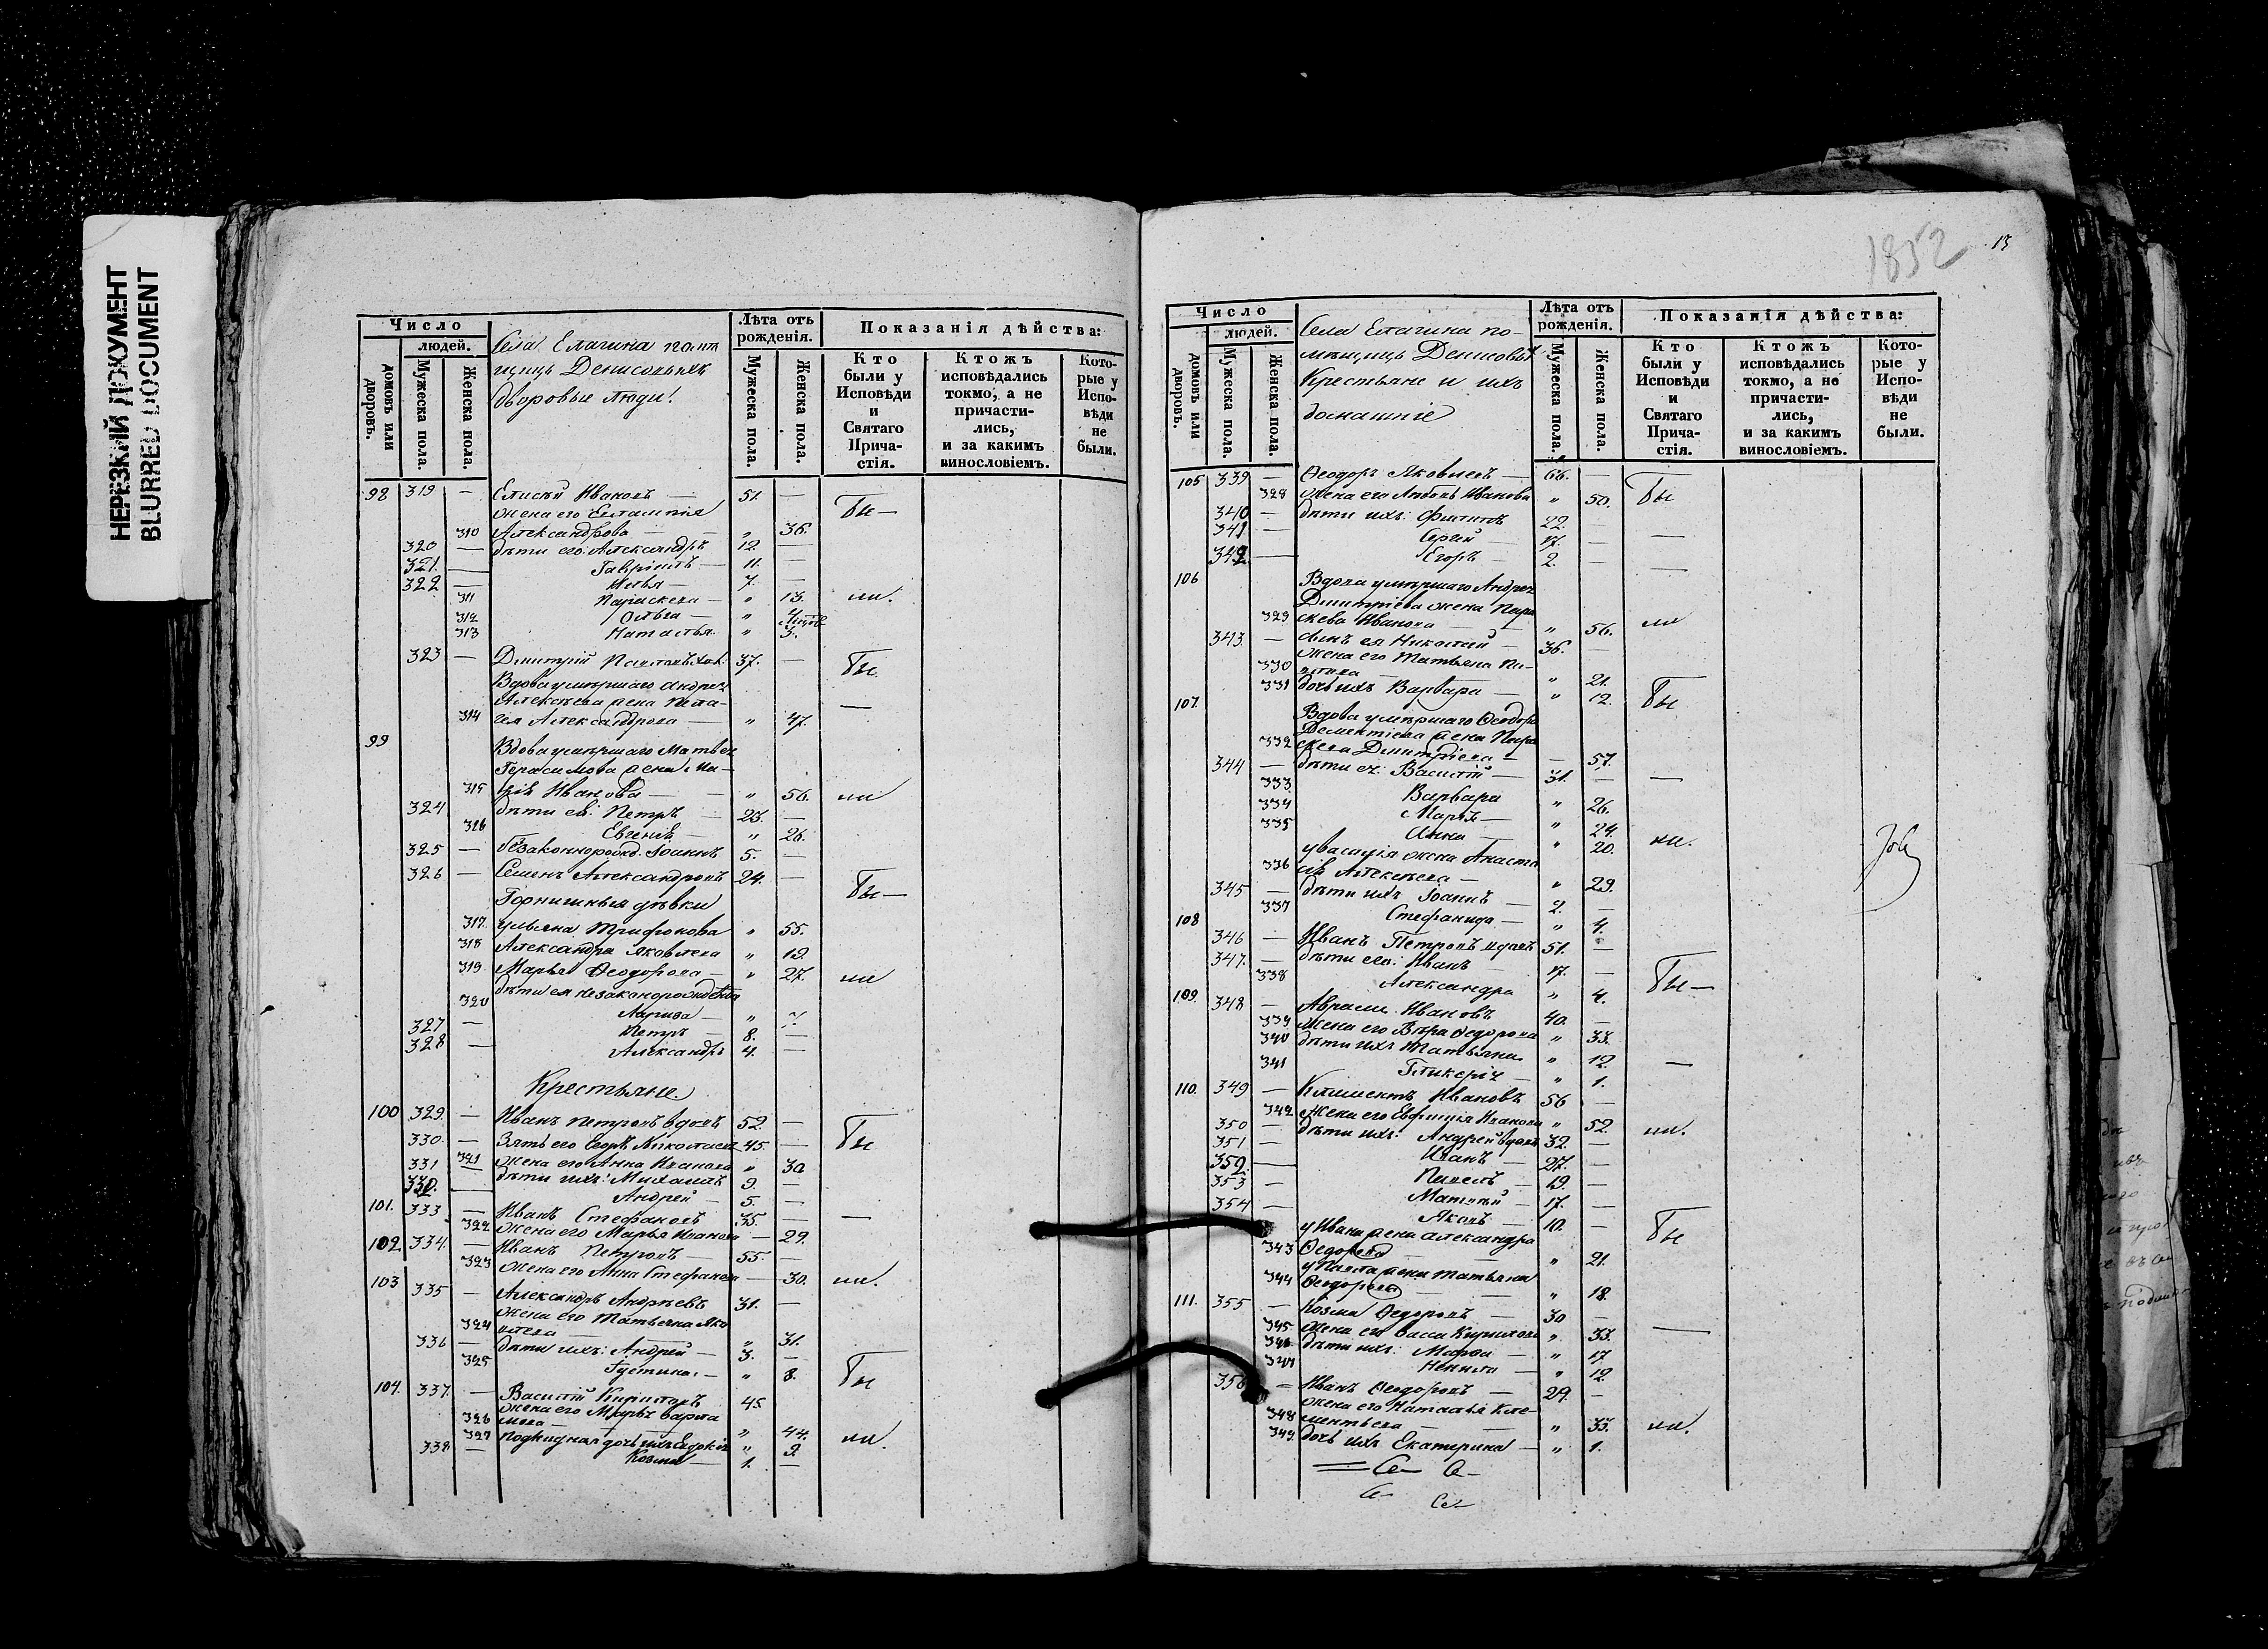 НЕРЕЗКИЙ ДОКУМЕНТ
BLURRED DOCUMENT
Число
людей.
домовъ или дворовъ.
Мужеска пола.
Женска пола.
Села Елагина помѣ
щицъ Денисовыхъ
дворовые люди:
Лѣта отъ рожденія.
Мужеска пола.
Женска пола.
Показанія дѣйства:
Кто были у Исповѣди и Святаго Прича-стія.
Ктожъ исповѣдались токмо, а не причасти-лись, и за какимъ винословіемъ.
Кото-рые у Испо-вѣди не были.
98 319 — Елисѣй Ивановъ — 51. — Бы—
жена его Евлампія
310 Александрова — „ 36.
320 — дѣти его: Александръ 12. —
321. — Гавріилъ — 11. —
322 — Илья — 7. —
311 Параскева — „ 13. ли.
312 Ольга — „
313 Наталья. „ 3.
323 — Дмитрій 37. — Бы.
Вдова умершаго Андрея
Алексѣева жена Пела-
314 гея Александрова — „ 47. —
99 Вдова умершаго Матвея
Герасимова жена Ма-
315 рія Иванова — „ 56. ли
324 дѣти ея: Петръ 23. —
316 Евгенія — „ 26.
325 — Незаконнорожд. Іоаннъ 5. —
326 — Семенъ Александровъ 24. — Бы—
Горничныя дѣвки
317. Ульяна Трифонова „ 55.
318 Александра Яковлева „ 19.
319 Марья Ѳеодорова — „ 27. ли
дѣти ея
320 Лариса — „ 7.
327 — Петръ — 8. —
328 — Александръ 4. —
Крестьяне.
100 329. — Иванъ Петровъ вдовъ 52. — Бы
330. — Зять его Егоръ Николаевъ 45. —
321 жена его Анна Иванова „ 30
331 — дѣти ихъ: Михаилъ 9. —
332. — Андрей — 5. —
101. 333 — Иванъ Стефановъ 35. — —
322 жена его Марья Иванова — 29.
102. 334. — Иванъ Петровъ — 55.
323 жена его Анна Стефанова — 30. ли.
103 335 — Александръ Андреевъ 31. —
жена его Татьяна Яко
324 влева — „ 31.
336 — дѣти ихъ: Андрей — 3. —
325 Густина. — „ 8. Бы
104. 337. — Василій Кириловъ 45.
жена его Марья Варла
326 мова — „ 44.
327 дочь ихъ „ 9. ли.
338 — Козма — 1. —
1852
13
Число
людей.
домовъ или дворовъ.
Мужеска пола.
Женска пола.
Села Елагина по-
мѣщицъ Денисовыхъ
Крестьяне и ихъ
домашніе
Лѣта отъ рожденія.
Мужеска пола.
Женска пола.
Показанія дѣйства:
Кто были у Исповѣди и Святаго Прича-стія.
Ктожъ исповѣдались токмо, а не причасти-лись, и за какимъ винословіемъ.
Кото-рые у Испо-вѣди не были.
105 339 — Ѳеодоръ Яковлевъ — 66. —
328 жена его Любовь Иванова „ 50. Бы
340 — дѣти ихъ: Филиппъ 22. —
341 — Сергій 17. — —
342 — Егоръ — 2. —
106 Вдова умершаго Андрея
Дмитріева жена Пара
329 скева Иванова — „ 56. ли
343. — сынъ ея Николай — 36. —
жена его Татьяна Па-
330 влова — „ 21.
331 дочь ихъ Варвара — „ 12. Бы
107. Вдова умершаго Ѳеодора
Дементіева жена Пара
332 скева Дмитріева — — 57.
344 — дѣти ея: Василій — 31. — —
333 Варвара „ 26.
334 Марья — „ 24.
335 Анна — „ 20. ли.
у Василія жена Анаста
336 сія Алексѣева — „ 29.
345 — дѣти ихъ Іоаннъ — 2. —
337 Стефанида — „ 4.
108 346 — Иванъ Петровъ вдовъ 51. —
347. — дѣти его: Иванъ — 17. —
338 Александра „ 4. Бы—
109. 348 — Аврамъ Ивановъ 40. —
339 жена его Вѣра Ѳедорова „ 33.
340 дѣти ихъ Татьяна „ 12. —
341 Гликерія — „ 1.
110. 349 — Климентъ Ивановъ 56 —
342 жена его Евфимія Иванова „ 52. ли.
350 — дѣти ихъ: Андрей вдовъ 32. —
351 — Иванъ — 27. —
352. — Павелъ — 19. —
353 — Матвей — 17. —
354 — Яковъ — 10. — Бы
у Ивана жена Александра
343 Ѳедорова — „ 21.
у Павла жена Татьяна
344 Ѳеодорова — „ 18.
111. 355 — Козма Ѳедоровъ — 30 —
345 жена его Васса Кирилова „ 33. —
346 дѣти ихъ: Марѳа — „ 17
347 Ненила — „ 12.
356 — Иванъ Ѳеодоровъ — 29. —
жена его Наталья Кле-
348 ментьева — „ 33. ли.
349. дочь ихъ Екатерина — „ 1.